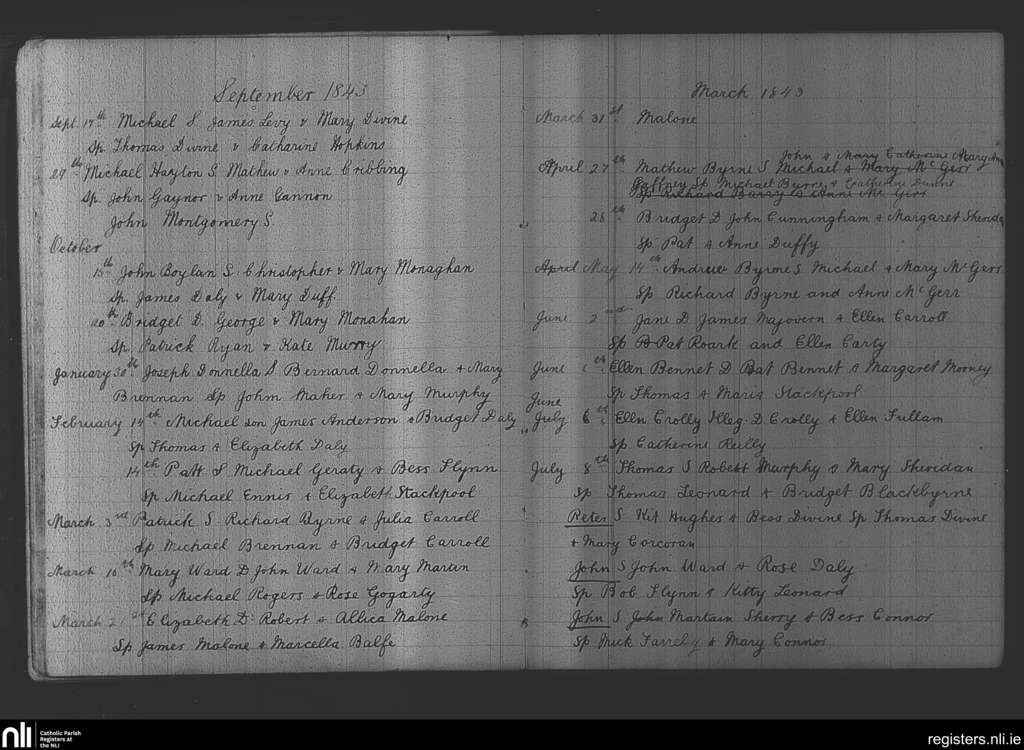 September 1843
Sept. 17th Michael S. James Levy & Mary Divine
Sp. Thomas Divine & Catharine Hopkins
29th Michael Hayton S. Mathew & Anne Cribbing
Sp. John Gaynor & Anne Cannon
John Montgomery S.
October
15th John Boylan S. Christopher & Mary Monaghan
Sp. James Daly & Mary Duff
20th Bridget D. George & Mary Monahan
Sp. Patrick Ryan & Kate Murry
January 30th Joseph Donnella S Bernard Donnella & Mary
Brennan Sp John Maher & Mary Murphy
February 14th Michael son James Anderson & Bridget Daly
Sp Thomas & Elizabeth Daly
14th Patt S Michael Geraty & Bess Flynn
Sp Michael Ennis & Elizabeth Stackpool
March 3rd Patrick S. Richard Byrne & Julia Carroll
Sp Michael Brennan & Bridget Carroll
March 10th Mary Ward D John Ward & Mary Martin
Sp Michael Rogers & Rose Gogarty
March Elizabeth D. Robert & Allica Malone
Sp James Malone & Marcella Balfe
March 1843
March 31st Malone
John & Mary Catherine Mary Ann
April 27th Mathew Byrne S Michael & Mary McGerr
Gaffney Sp Michael Byrne & Catherine Dunne
Sp Richard Barry & Anne McGerr
28th Bridget D John Cunningham & Margaret Sherida
Sp Pat & Anne Duffy
April May 14th Andrew Byrne S Michael & Mary McGerr
Sp Richard Byrne and Anne McGerr
June 2nd Jane D James Magovern & Ellen Carroll
Sp Pat Roark and Ellen Carty
June Ellen Bennet D Bat Bennet & Margaret Mooney
Sp Thomas & Maria Stackpool
June
July 6th Ellen Crolly Illeg. D Crolly & Ellen Fullam
Sp Catherine Reilly
July 8th Thomas S Robert Murphy & Mary Sheridan
Sp Thomas Leonard & Bridget Blackbyrne
Peter S Kit Hughes & Bess Divine Sp Thomas Divine
& Mary Corcoran
John S John Ward & Rose Daly
Sp Bob Flynn & Kitty Leonard
John S John Martain Sherry & Bess Connor
Sp Mick Farrely & Mary Connor
nli Catholic Parish
Registers at
the NLI
registers.nli.ie